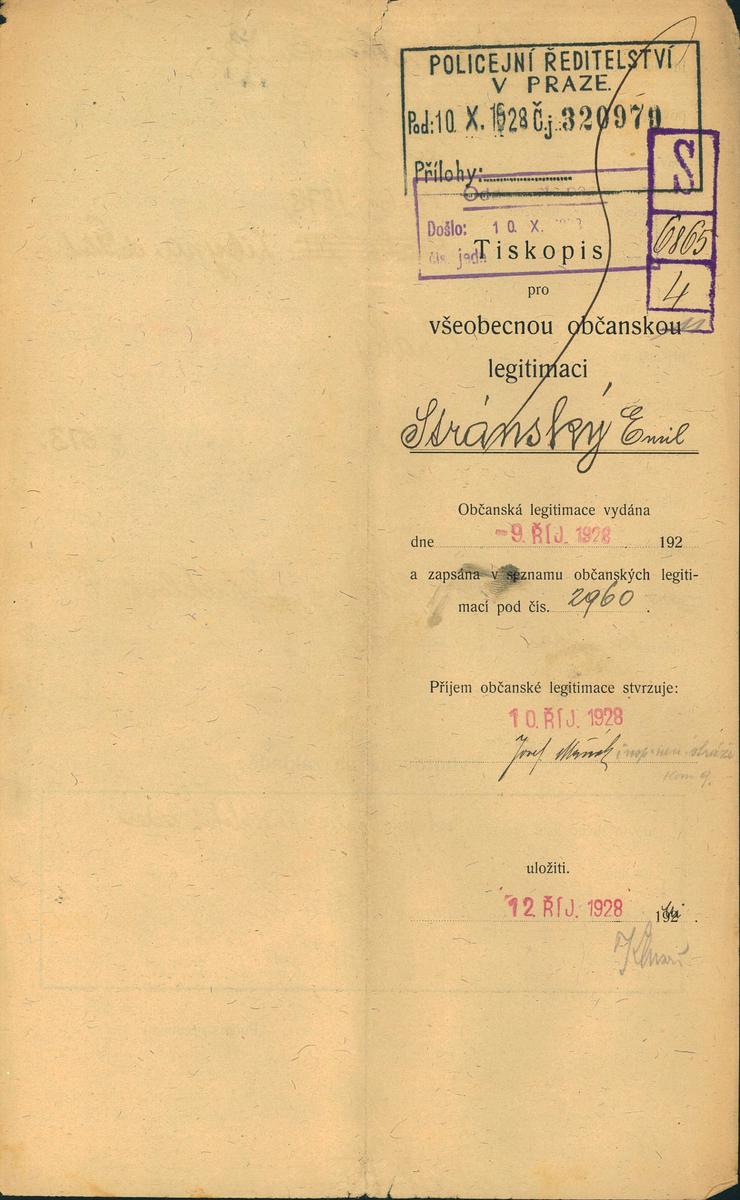 POLICEJNÍ ŘEDITELSTVÍ
V PRAZE.
Pod: 10 X. 1928 Č.j. 320979
Přílohy:
S
6865
4
Došlo: 10. X.
čís. jedn
Tiskopis
pro
všeobecnou občanskou
legitimaci
Stránský Emil
Občanská legitimace vydána
dne -9. ŘÍJ. 1928 192
a zapsána v seznamu občanských legiti-
mací pod čís. 2960 .
Příjem občanské legitimace stvrzuje:
10. ŘÍJ. 1928
Josef
uložiti.
12. ŘÍJ. 1928 192 .